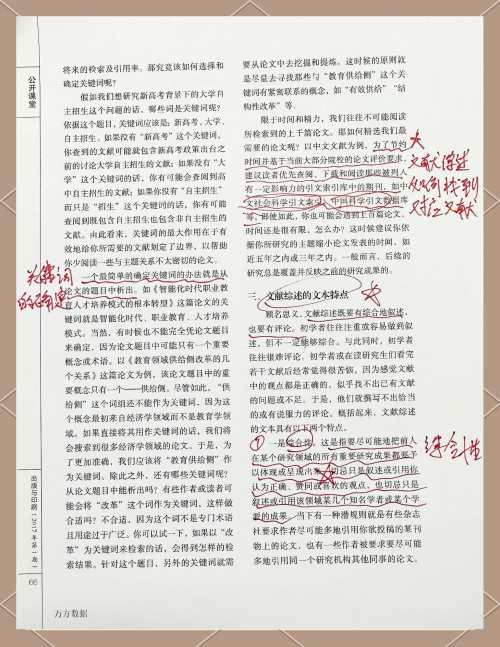 公开课堂
将来的检索及引用率。那究竟该如何选择和
确定关键词呢?
假如我们想研究新高考背景下的大学自
主招生这个问题的话，哪些是关键词呢?
依据这个题目，关键词应该是：新高考、大学、
自主招生。如果没有“新高考”这个关键词，
你查到的文献可能就包含新高考政策出台之
前的讨论大学自主招生的文献；如果没有“大
学”这个关键词的话，你有可能会查阅到高
中自主招生的文献；如果你没有“自主招生”
而只是“招生”这个关键词的话，你有可能
查阅到既包含自主招生也包含非自主招生的
文献。由此看来，关键词的最大作用在于有
效地给你所需要的文献划定了边界，以帮助
你少阅读一些与主题关系不大密切的论文。
一个最简单的确定关键词的办法就是从
论文的题目中析出。如《智能化时代职业教
育人才培养模式的根本转型》这篇论文的关
键词就是智能化时代、职业教育、人才培养
模式。当然，有时候也不能完全凭论文题目
来确定，因为论文题目中可能只有一个重要
概念或术语。以《教育领域供给侧改革的几
个关系》这篇论文为例，该论文题目中的重
要概念只有一个——供给侧。尽管如此，“供
给侧”这个词组还不能作为关键词，因为这
个概念最初来自经济学领域而不是教育学领
域。如果直接将其用作关键词的话，我们将
会搜索到很多经济学领域的论文。于是，为
了更加准确，我们应该将“教育供给侧”作
为关键词。除此之外，还有哪些关键词呢?
从论文题目能析出吗? 有些作者或者读者可
能会将“改革”这个词作为关键词，这样做
合适吗? 不合适，因为这个词不是专门术语
且用途过于广泛。你可以试一下，如果以“改
革”为关键词来检索的话，会得到怎样的检
索结果。针对这个题目，另外的关键词就需
要从论文中去挖掘和提炼。这时候的原则就
是尽量去寻找那些与“教育供给侧”这个关
键词有紧密联系的概念，如“有效供给”“结
构性改革”等。
限于时间和精力，我们往往不可能阅读
所检索到的上千篇论文。那如何精选我们最
需要的论文呢? 以中文文献为例，为了节约
时间并基于当前大部分院校的论文评价要求，
建议读者优先查阅、下载和阅读那些被列入
有一定影响力的引文索引库中的期刊，如中
文社会科学引文索引、中国科学引文数据库
等。即使如此，你也可能会遇到上百篇论文。
时间还是很有限，怎么办? 这时候建议你依
据你所研究的主题缩小论文发表的时间，如
近五年之内或三年之内。一般而言，后续的
研究总是覆盖并反映之前的研究成果的。
三、文献综述的文本特点
顾名思义，文献综述既要有综合地叙述，
也要有评论。初学者往往重或容易做到叙
述，但不一定能够综合。与此同时，初学者
往往很难评论。初学者或在读研究生们看完
若干文献后经常觉得很苦恼，因为感觉文献
中的观点都是正确的，似乎找不出已有文献
的问题或不足。于是，他们就撰写不出恰当
的或有说服力的评论。概括起来，文献综述
的文本具有以下两个特点。
一是综合性。这是指要尽可能地把前人
在某个研究领域的所有重要研究成果都要予
以体现或呈现出来，切忌只是叙述或引用你
认为正确、赞同或喜欢的观点，也切忌只是
叙述或引用该领域某几个知名学者或某个学
派的成果。当下有一种潜规则就是有些杂志
社要求作者尽可能多地引用你欲投稿的某刊
物上的论文，也有一些作者被要求要尽可能
多地引用同一个研究机构其他同事的论文。
关键词
文献综述
综合性
出版与印刷（2017年第1期）
66
万方数据